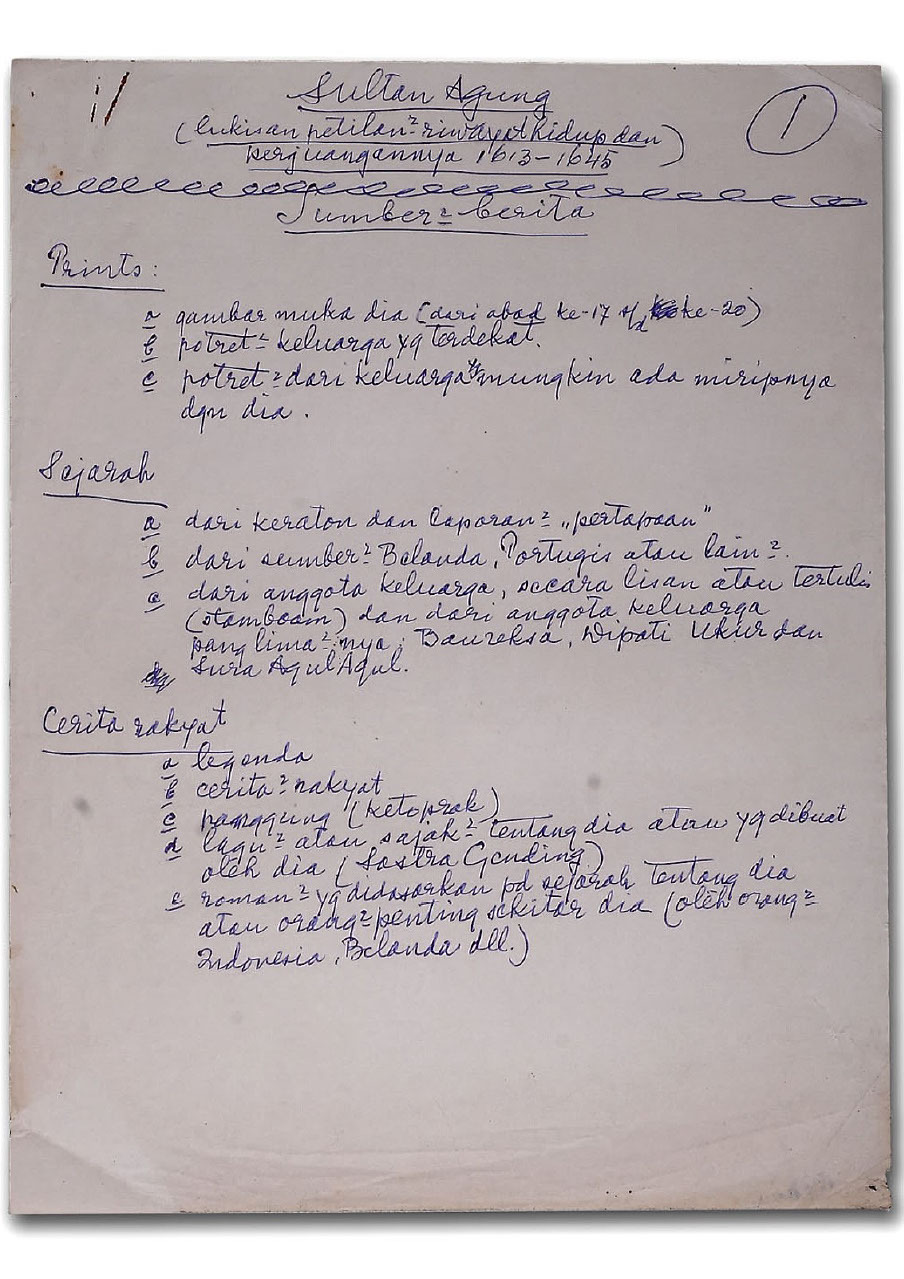 i/
Sultan Agung
1
(lukisan petilan² riwayat hidup dan
perjuangannya 1613-1645)
Sumber² berita
Prints:
a gambar muka dia (dari abad ke-17 s/d ke-20)
b potret² keluarga yg terdekat.
c potret² dari keluarga yg mungkin ada miripnya
dgn dia.
Sejarah
a dari keraton dan laporan² „pertapaan"
b dari sumber² Belanda, Portugis atau lain².
c dari anggota keluarga, secara lisan atau tertulis
(stamboom) dan dari anggota keluarga
panglima²nya: Baureksa, Dipati Ukur dan
Sura Agul Agul.
Cerita rakyat
a legenda
b cerita² rakyat
c panggung (ketoprak)
d lagu² atau sajak² tentang dia atau yg dibuat
oleh dia (Sastra Gending)
e roman² yg didasarkan pd sejarah tentang dia
atau orang² penting sekitar dia (oleh orang²
Indonesia, Belanda dll.)